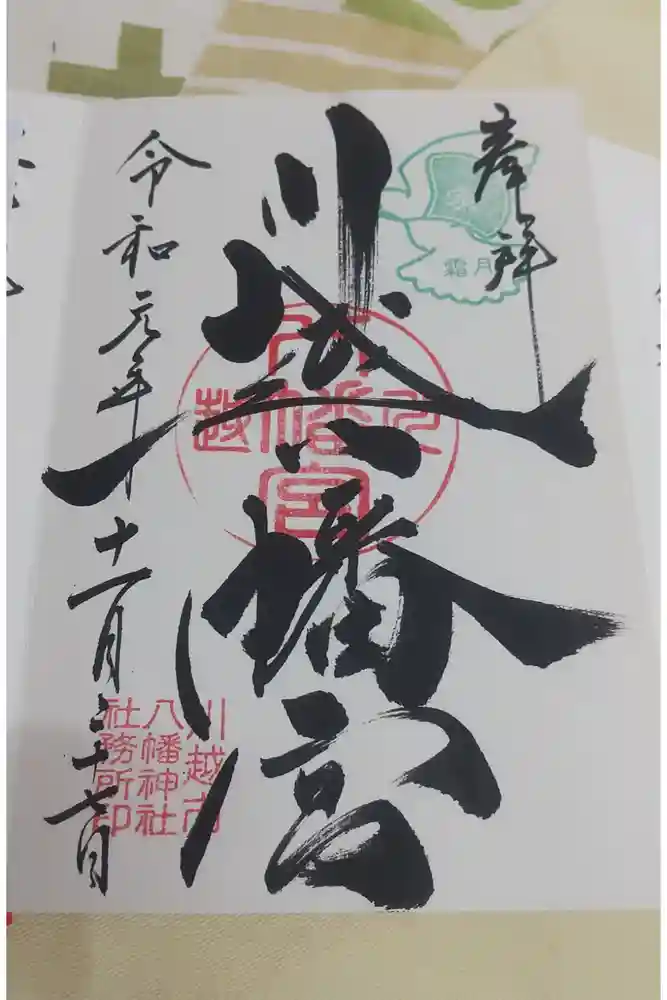 奉拝
霜月
川越八幡宮
川越八幡宮
令和元年
十一月二十七日
川越市
八幡神社
社務所印